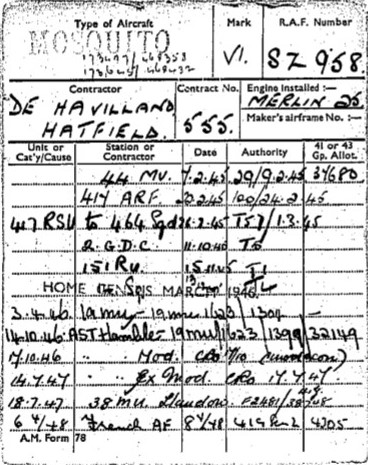 Type of Aircraft Mark R.A.F. Number
MOSQUITO VI. SZ958.
Contractor Contract No. Engine Installed :—
DE HAVILLAND MERLIN 25.
HATFIELD. 555. Maker's airframe No. :—
Unit or Cat'y/Cause Station or Contractor Date Authority 41 or 43 Gp. Allot.
44 MU. 7.2.45 29/9.2.45 37680
417 ARF. 22.2.45 100/24.2.45
417 RSU to 464 Sqd 26.2.45 T57/1.3.45
2.G.D.C. 11.10.45 T5
151 RU. 15.11.45 T1
HOME CENSUS MARCH 1946.
3.4.46 19 MU 19 MU 1623/1304
14.10.46 AST Hamble 19 MU 1623 1399 32149
17.10.46 " " Mod. CRO
14.7.47 " " Ex Mod. CRO 17.7.47.
18.7.47 38 MU Llandow. F2481/38
6 4/48 French AF 8 4/48 41G 4205
A.M. Form 78